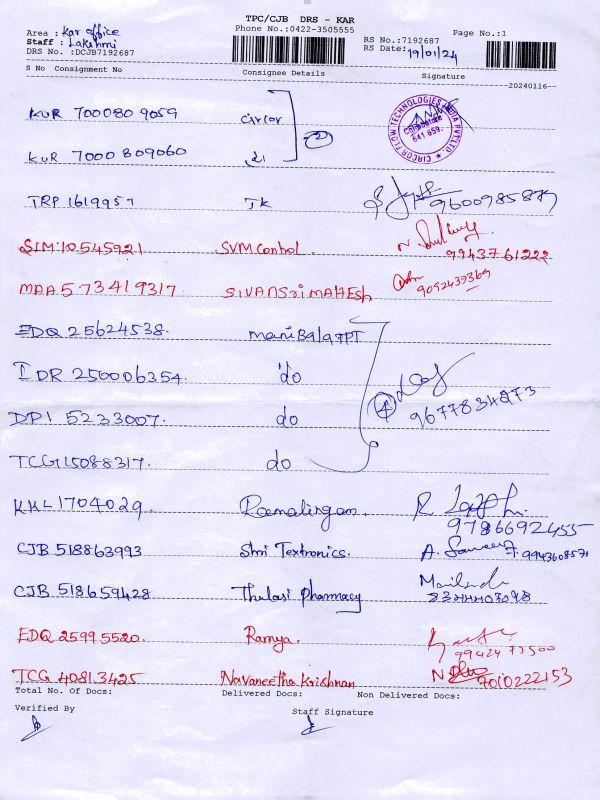 TPC/CJB DRS - KAR
Area : Kar office Phone No.:0422-3505555 Page No.:1
Staff : Lakshmi RS No.:7192687
DRS No. :DCJB7192687 RS Date: 19/01/24
S No Consignment No Consignee Details Signature 20240116
KUR 700080 9059 circor
KUR 7000 809060 2
CIRCOR FLOW TECHNOLOGIES INDIA PVT LTD. COIMBATORE 641 659.
TRP 1619957 TK 9600985879
SLM:10545921 SVM Control. 9943761222
MAA 573419317 SIVANSriMAHESh 9092437369
EDQ 25624538. maniBalaTPT
IDR 250006354. do 4
DPI 5233007. do 9677834873
TCG15088317. do
KKL1704029 Ramalingam. 9786692455
CJB 518863993 Shri Textronics. 9943608571
CJB 518659428 Thulasi pharmacy
EDQ 25995520. Ramya. 9942477500
TCG 40813425 Navaneetha krishnan 7010222153
Total No. Of Docs: Delivered Docs: Non Delivered Docs:
Verified By Staff Signature